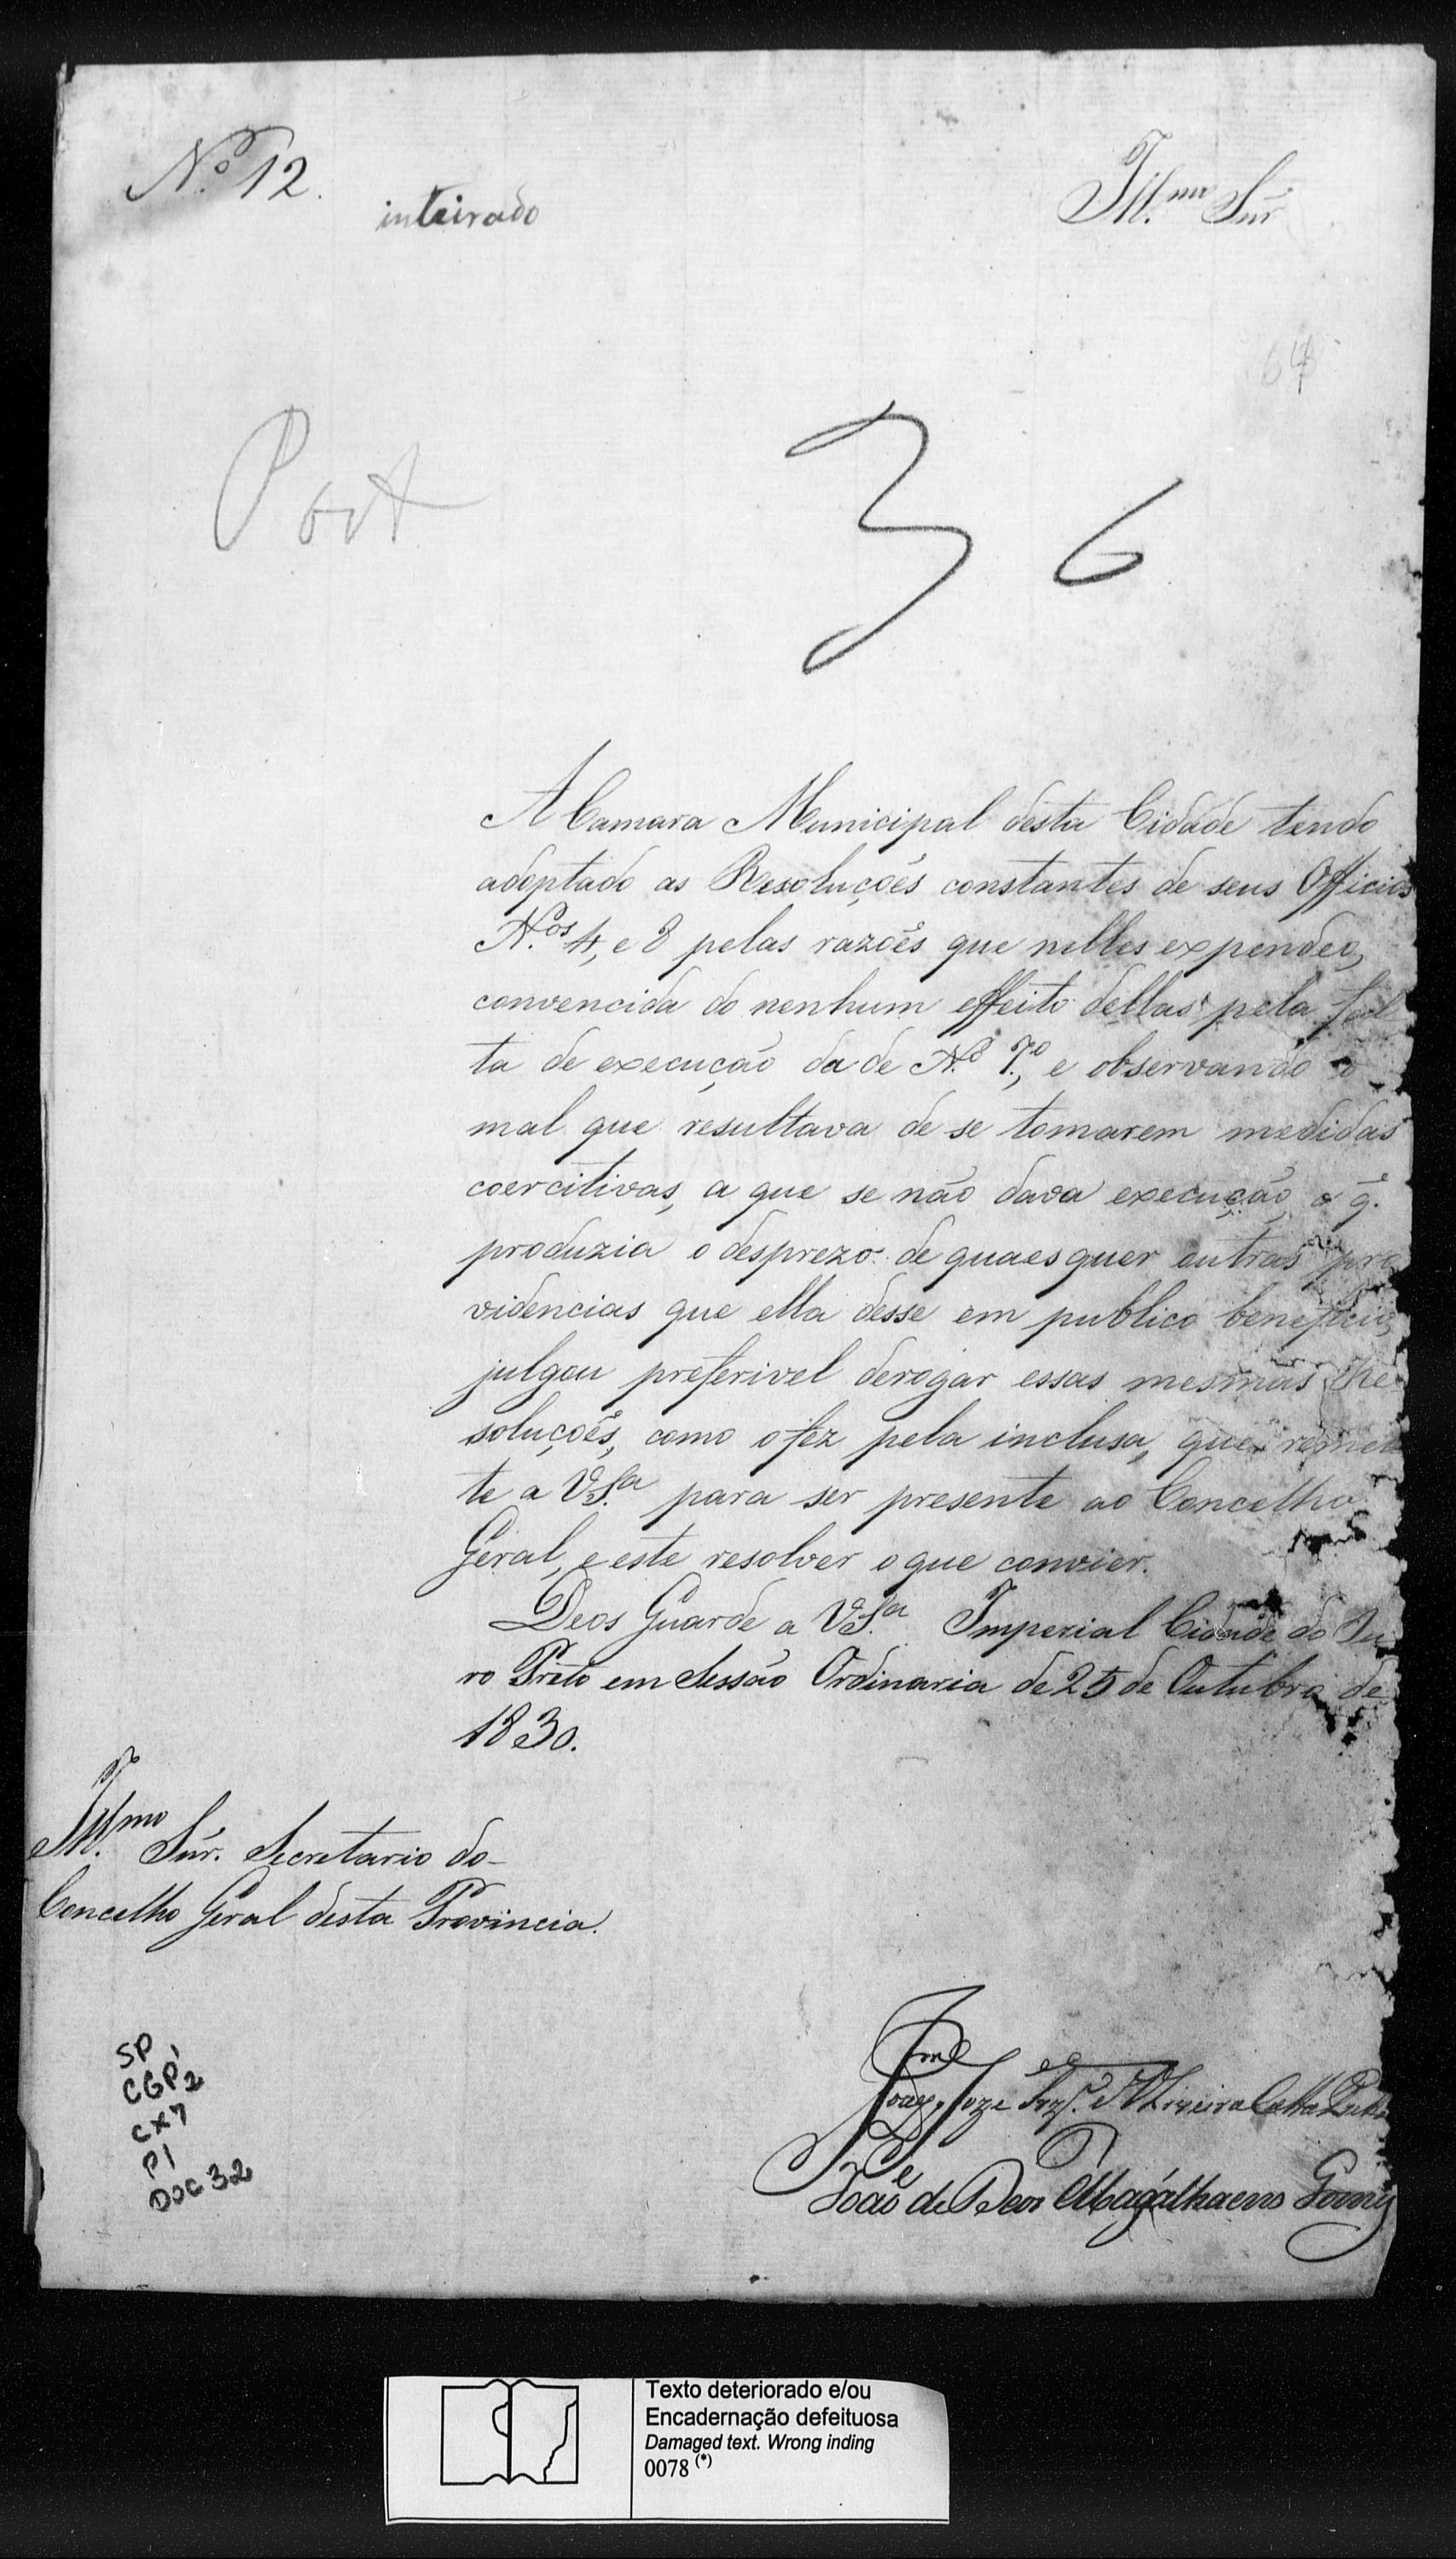 Nº 12.
inteirado
Ill.mo Snr
64
Port
3 6
A Camara Municipal desta Cidade tendo
adoptado as Resoluções constantes de seus Officios
N.os 4, e 8 pelas razoẽs que nelles expendeo,
convencida do nenhum effeito dellas pela fal
ta de execução da de Nº 7º, e observando o
mal que resultava de se tomarem medidas
coercitivas, a que se não dava execução, o q.
produzia o desprezo de quaesquer outras pro
videncias que ella desse em publico beneficio,
julgou preferivel derogar essas mesmas Re
soluçoẽs, como o fez pela inclusa, que remet
te a VS.a para ser presente ao Concelho
Geral, e este resolver o que convier.
Deos Guarde a VS.a Imperial Cidade do Ou
ro Preto em Sessão Ordinaria de 25 de Outubro de
1830.
Ill.mo Snr. Secretario do
Concelho Geral desta Provincia.
João de Deos Magalhaens Gomes
SP
CGP 2
CX 7
P1
DOC 32
Texto deteriorado e/ou
Encadernação defeituosa
Damaged text. Wrong inding
0078 (*)